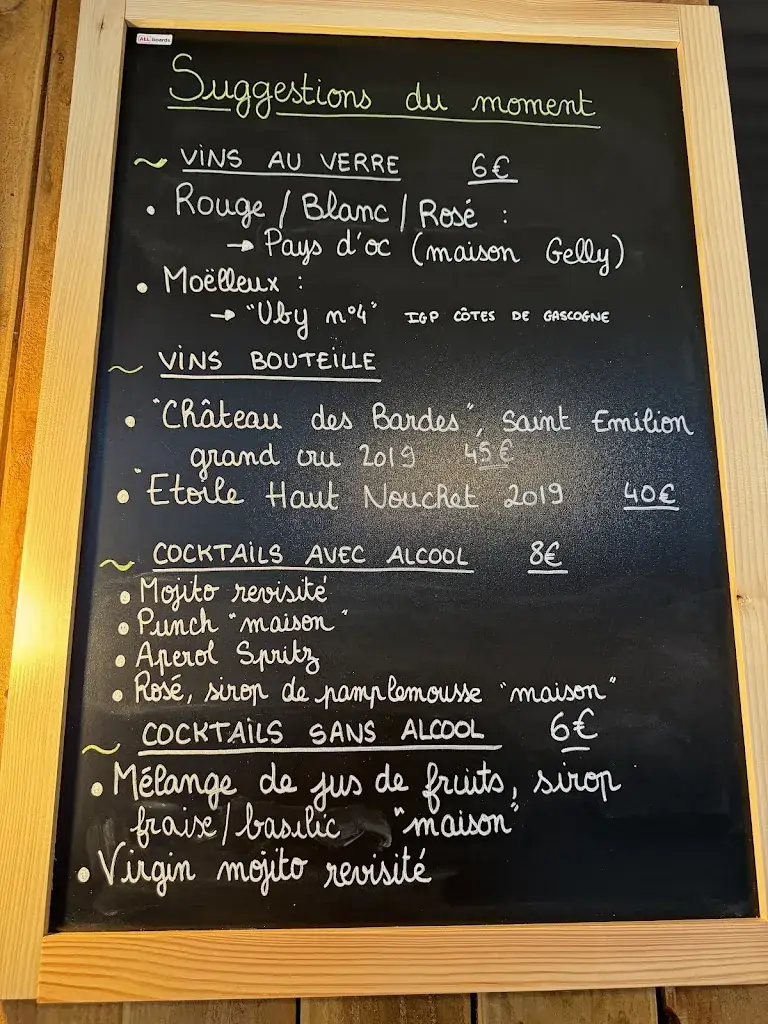 ALL Boards
Suggestions du moment
~ VINS AU VERRE 6€
• Rouge / Blanc / Rosé :
→ Pays d'oc (maison Gelly)
• Moëlleux :
→ "Uby n°4" IGP CÔTES DE GASCOGNE
~ VINS BOUTEILLE
• "Château des Bardes", Saint Emilion
grand cru 2019 45€
• "Etoile Haut Nouchet 2019 40€
~ COCKTAILS AVEC ALCOOL 8€
• Mojito revisité
• Punch "maison"
• Aperol Spritz
• Rosé, sirop de pamplemousse "maison"
~ COCKTAILS SANS ALCOOL 6€
• Mélange de jus de fruits, sirop
fraise/basilic "maison"
• Virgin mojito revisité